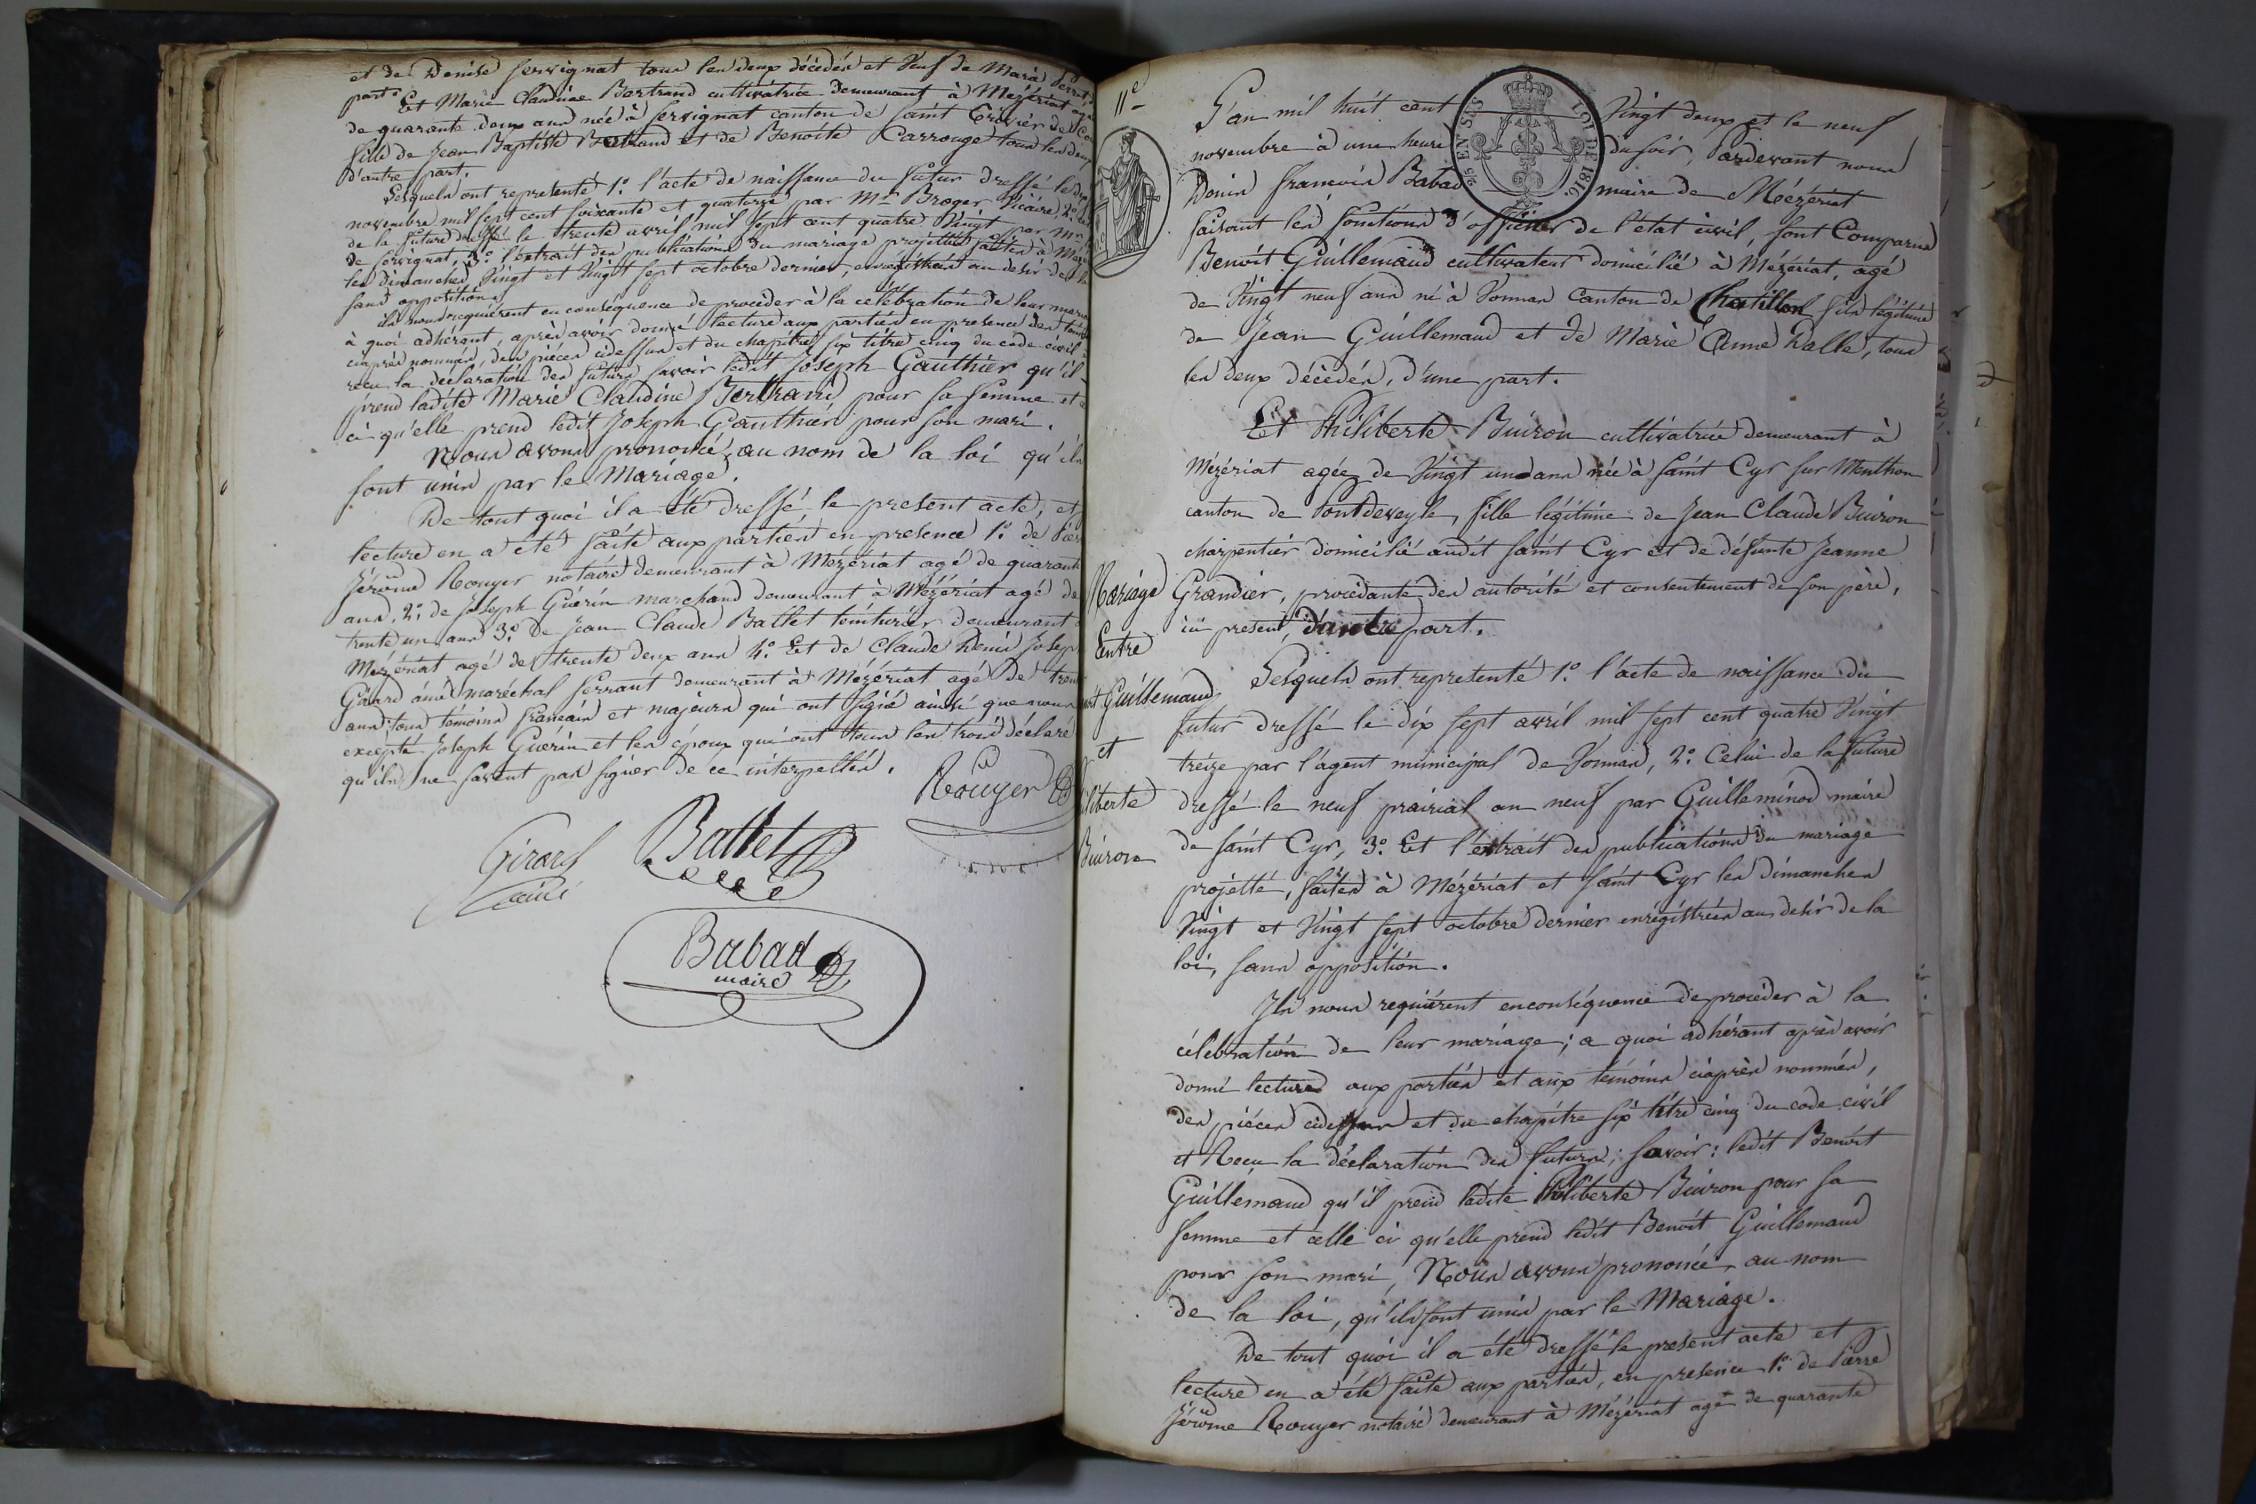 et de Denise servignat tous les deux décédés et Veuf de Marie
part. Et Marie Claudine Bertrand cultivatrice demeurant à Mézériat
de quarante deux ans née à servignat canton de saint Trivier de
fille de Jean Baptiste Bertrand et de Benoite Carrouge tous les deux
d'autre part.
Lesquels ont representé 1.º l'acte de naissance du futur dressé le
novembre mil sept cent soixante et quatorze par Mr Broger Vicaire, 2.º
de la future dressé le trente avril mil sept cent quatre Vingt par Mr
de servignat, 3.º l'extrait des publications du mariage projetté faites à
les dimanches Vingt et Vingt sept octobre dernier, enregistrées au desir de
sans opposition.
ils nous requièrent en conséquence de procéder à la célébration de leur
à quoi adhérant, après avoir donné lecture aux parties en presence des
ciaprès nommés, des pièces cidessus et du chapitre six titre cinq du code civil
recu la declaration des futurs savoir ledit Joseph Gauthier qu'il
prend ladite Marie Claudine Bertrand pour sa femme et
ci qu'elle prend ledit Joseph Gauthier pour son mari.
Nous avons prononcé, au nom de la loi qu'ils
sont unis par le Mariage.
De tout quoi il a été dressé le present acte, et
lecture en a été faite aux parties en presence 1.º de
Jérôme Rouyer notaire demeurant à Mézériat agé de quarante
ans, 2.º de Joseph Guérin marchand demeurant à Mézériat agé de
trente un ans 3.º de Jean Claude Ballet teinturier demeurant
Mézériat agé de trente deux ans 4.º Et de Claude Denis
Girard ainé maréchal ferrant demeurant à Mézériat agé de
ans, tous témoins francais et majeurs qui ont signé ainsi que nous
excepté Joseph Guérin et les époux qui ont tous les trois déclaré
qu'ils ne savent pas signer de ce interpellés.
Rouyer
Girard
ainé
Ballet
Babad
maire
11e
25 EN SUS
LOI DE 1816.
L'an mil huit cent Vingt deux et le neuf
novembre à une heure du soir, Pardevant nous
Denis francois Babad maire de Mézériat
faisant les fonctions d'officier de l'état civil, sont Comparus
Benoit Guillemaud cultivateur domicilié à Mézériat, agé
de Vingt neuf ans né à Vonnas Canton de Chatillon fils légitime
de Jean Guillemaud et de Marie Anne Dalle, tous
les deux décédés, d'une part.
Et Philiberte Buiron cultivatrice demeurant à
Mézériat agée de Vingt un ans née à saint Cyr sur Menthon
canton de Pontdeveyle, fille légitime de Jean Claude Buiron
charpentier domicilié audit saint Cyr et de défunte Jeanne
Grandier, procédante des autorité et consentement de son père,
ici present, d'autre part.
Mariage
Entre
Guillemaud
et
Philiberte
Buiron
Lesquels ont representé 1.º l'acte de naissance du
futur dressé le dix sept avril mil sept cent quatre Vingt
treize par l'agent municipal de Vonnas, 2.º Celui de la future
dressé le neuf prairial an neuf par Guilleminod maire
de saint Cyr, 3.º Et l'extrait des publications du mariage
projetté, faites à Mézériat et saint Cyr les dimanches
Vingt et Vingt sept octobre dernier enregistrées au desir de la
loi, sans opposition.
Ils nous requièrent enconséquence deprocéder à la
célébration de leur mariage; a quoi adhérant après avoir
donné lecture aux parties et aux témoins ciaprès nommés,
des pièces cidessus et du chapitre six titre cinq du code civil
et Recu la déclaration des futurs; savoir: ledit Benoit
Guillemaud qu'il prend ladite Philiberte Buiron pour sa
femme et celle ci qu'elle prend ledit Benoit Guillemaud
pour son mari, Nous avons prononcé, au nom
de la loi, qu'ils sont unis par le Mariage.
De tout quoi il a été dressé le present acte et
lecture en a été faite aux parties, en presence 1.º de Pierre
Jérôme Rouyer notaire demeurant à Mézériat agé de quarante